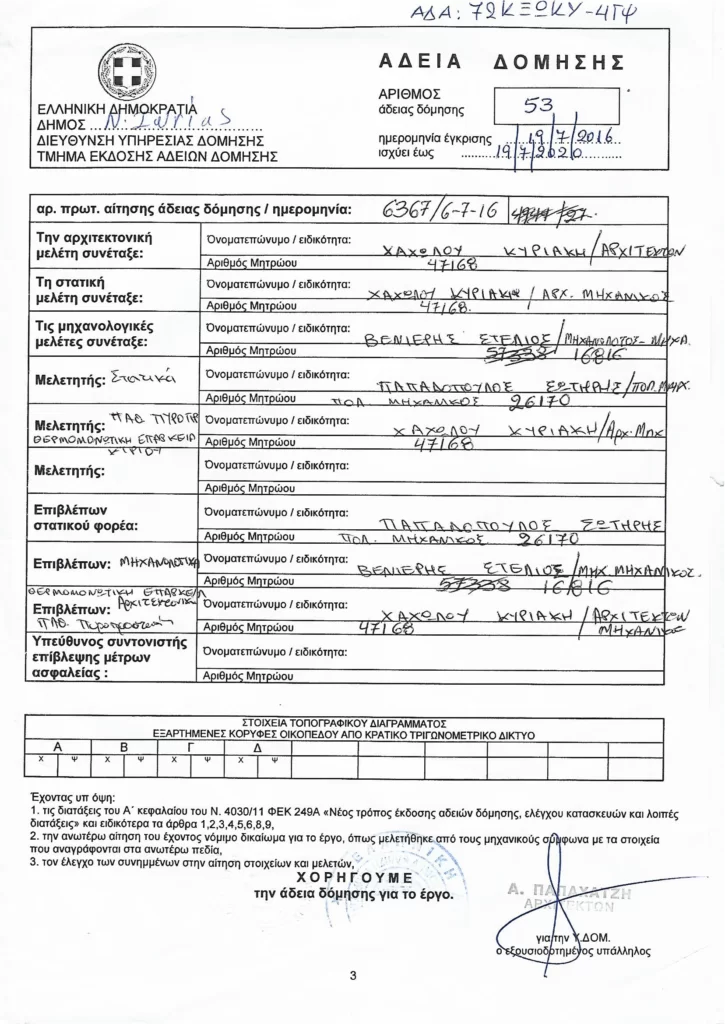 ΑΔΑ: 7ΩΚΞΩΚΥ-4ΓΨ
ΑΔΕΙΑ ΔΟΜΗΣΗΣ
ΕΛΛΗΝΙΚΗ ΔΗΜΟΚΡΑΤΙΑ
ΔΗΜΟΣ ...Ν. Ιωνίας
ΔΙΕΥΘΥΝΣΗ ΥΠΗΡΕΣΙΑΣ ΔΟΜΗΣΗΣ
ΤΜΗΜΑ ΕΚΔΟΣΗΣ ΑΔΕΙΩΝ ΔΟΜΗΣΗΣ
ΑΡΙΘΜΟΣ
άδειας δόμησης 53
ημερομηνία έγκρισης 19/7/2016
ισχύει έως 19/7/2020
αρ. πρωτ. αίτησης άδειας δόμησης / ημερομηνία: 6367/6-7-16
Την αρχιτεκτονική μελέτη συνέταξε:
Όνοματεπώνυμο / ειδικότητα: ΧΑΧΩΛΟΥ ΚΥΡΙΑΚΗ/ΑΡΧΙΤΕΚΤΩΝ
Αριθμός Μητρώου 47168
Τη στατική μελέτη συνέταξε:
Όνοματεπώνυμο / ειδικότητα: ΧΑΧΩΛΟΥ ΚΥΡΙΑΚΗ / ΑΡΧ. ΜΗΧΑΝΙΚΟΣ
Αριθμός Μητρώου 47168.
Τις μηχανολογικές μελέτες συνέταξε:
Όνοματεπώνυμο / ειδικότητα: ΒΕΝΙΕΡΗΣ ΣΤΕΛΙΟΣ/ΜΗΧΑΝΟΛΟΓΟΣ-ΜΗΧΑ.
Αριθμός Μητρώου 57338 16816
Μελετητής: Στατικά
Όνοματεπώνυμο / ειδικότητα: ΠΑΠΑΔΟΠΟΥΛΟΣ ΣΩΤΗΡΗΣ/ΠΟΛ.ΜΗΧ.
Αριθμός Μητρώου ΠΟΛ. ΜΗΧΑΝΙΚΟΣ 26170
Μελετητής: ΠΑΘ. ΠΥΡΟΠΡ
ΘΕΡΜΟΜΟΝΩΤΙΚΗ ΕΠΑΡΚΕΙΑ
ΚΤΙΡΙΟΥ
Όνοματεπώνυμο / ειδικότητα: ΧΑΧΩΛΟΥ ΚΥΡΙΑΚΗ/Αρχ. Μηχ
Αριθμός Μητρώου 47168
Μελετητής:
Όνοματεπώνυμο / ειδικότητα:
Αριθμός Μητρώου
Επιβλέπων στατικού φορέα:
Όνοματεπώνυμο / ειδικότητα: ΠΑΠΑΔΟΠΟΥΛΟΣ ΣΩΤΗΡΗΣ
Αριθμός Μητρώου ΠΟΛ. ΜΗΧΑΝΙΚΟΣ 26170
Επιβλέπων: ΜΗΧΑΝΟΛΟΓΙΚΑ
Όνοματεπώνυμο / ειδικότητα: ΒΕΝΙΕΡΗΣ ΣΤΕΛΙΟΣ/ΜΗΧ. ΜΗΧΑΝΙΚΟΣ.
Αριθμός Μητρώου 57338 16816
ΘΕΡΜΟΜΟΝΩΤΙΚΗ ΕΠΑΡΚΕΙΑ
Επιβλέπων: Αρχιτεκτονικά
ΠΑΘ. Πυροπροστασία
Όνοματεπώνυμο / ειδικότητα: ΧΑΧΩΛΟΥ ΚΥΡΙΑΚΗ / ΑΡΧΙΤΕΚΤΩΝ
Αριθμός Μητρώου 47168 ΜΗΧΑΝΙΚΟΣ
Υπεύθυνος συντονιστής επίβλεψης μέτρων ασφαλείας :
Όνοματεπώνυμο / ειδικότητα:
Αριθμός Μητρώου
ΣΤΟΙΧΕΙΑ ΤΟΠΟΓΡΑΦΙΚΟΥ ΔΙΑΓΡΑΜΜΑΤΟΣ
ΕΞΑΡΤΗΜΕΝΕΣ ΚΟΡΥΦΕΣ ΟΙΚΟΠΕΔΟΥ ΑΠΟ ΚΡΑΤΙΚΟ ΤΡΙΓΩΝΟΜΕΤΡΙΚΟ ΔΙΚΤΥΟ
Α Β Γ Δ
Χ Ψ Χ Ψ Χ Ψ Χ Ψ
Έχοντας υπ όψη:
1. τις διατάξεις του Α΄ κεφαλαίου του Ν. 4030/11 ΦΕΚ 249Α «Νέος τρόπος έκδοσης αδειών δόμησης, ελέγχου κατασκευών και λοιπές
διατάξεις» και ειδικότερα τα άρθρα 1,2,3,4,5,6,8,9,
2. την ανωτέρω αίτηση του έχοντος νόμιμο δικαίωμα για το έργο, όπως μελετήθηκε από τους μηχανικούς σύμφωνα με τα στοιχεία
που αναγράφονται στα ανωτέρω πεδία,
3. τον έλεγχο των συνημμένων στην αίτηση στοιχείων και μελετών,
ΧΟΡΗΓΟΥΜΕ
την άδεια δόμησης για το έργο.
Α. ΠΑΠΑΧΑΤΖΗ
ΑΡΧΙΤΕΚΤΩΝ
για την Υ.ΔΟΜ.
ο εξουσιοδοτημένος υπάλληλος
3